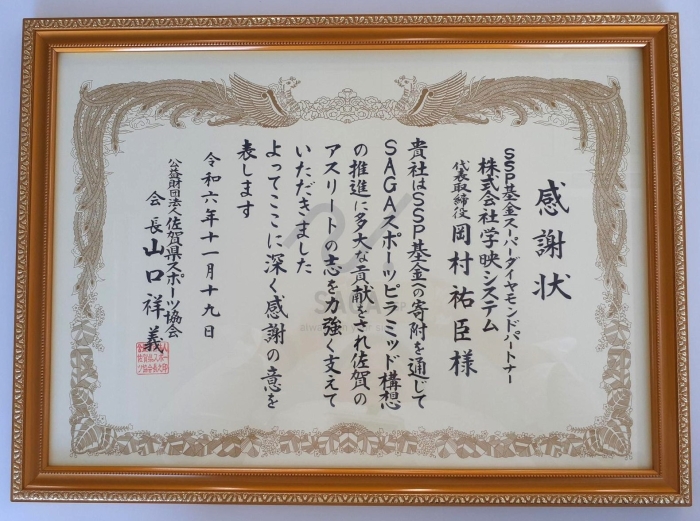 感謝状
SSP基金スーパーダイヤモンドパートナー
株式会社学映システム
代表取締役 岡村祐臣様
貴社はSSP基金への寄附を通じて
SAGAスポーツピラミッド構想
の推進に多大な貢献をされ佐賀の
アスリートの志を力強く支えて
いただきました
よってここに深く感謝の意を
表します
令和六年十一月十九日
公益財団法人佐賀県スポーツ協会
会長山口祥義
SAGA